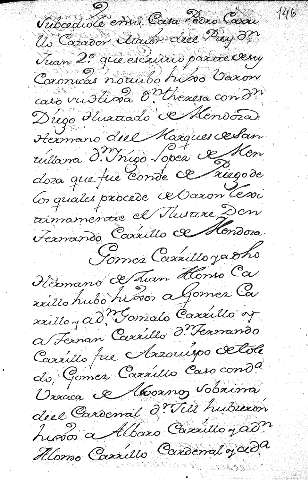 146
Subcediole en su Casa Pedro Carri
llo Cazador maior del Rey Dn
Juan 2o que escrivio parte de su
Coronica no tubo hijo varon
caso su hija Da theresa con Dn
Diego Hurtado de Mendoza
Hermano del Marques de San
tillana Dn Yñigo Lopez de Men
doza que fue Conde de Priego de
los quales procede de varon lexi
timamente el Ilustre Don
Fernando Carrillo de Mendoza.
Gomez Carrillo ya dho
Hermano de Juan Alonso Ca
rrillo hubo hijos a Gomez Ca
rrillo, y a Dn Gonzalo Carrillo y
a Fernan Carrillo Dn Fernando
Carrillo fue Arzovispo de tole
do, Gomez Carrillo caso con Da
Urraca de Albornoz sobrina
del Cardenal Dn Gil hubieron
hijos a Albaro Carrillo y a Dn
Alonso Carrillo Cardenal, y a Da